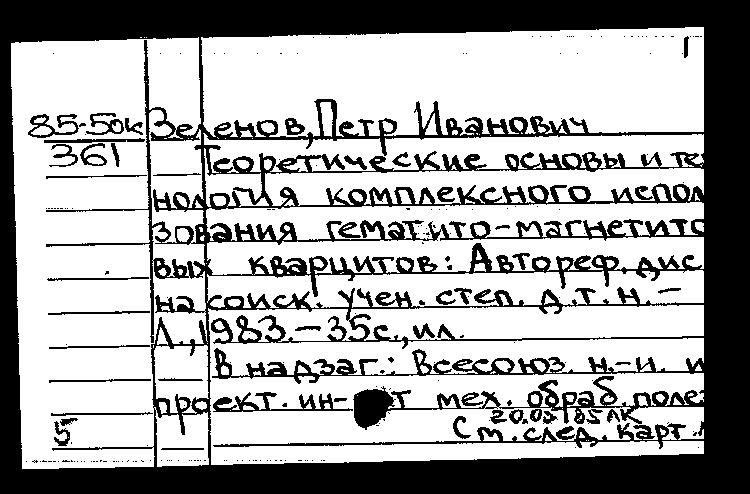 1
85-50к Зеленов, Петр Иванович
361 Теоретические основы и тех
нология комплексного испол
зования гематито-магнетито
вых кварцитов: Автореф. дис
на соиск. учен. степ. д.т.н. –
Л., 1983. – 35с., ил.
В надзаг.: Всесоюз. н.-и. и
проект. ин-т мех. обраб. поле
20.02.85 ЛК
5 См. след. карт.